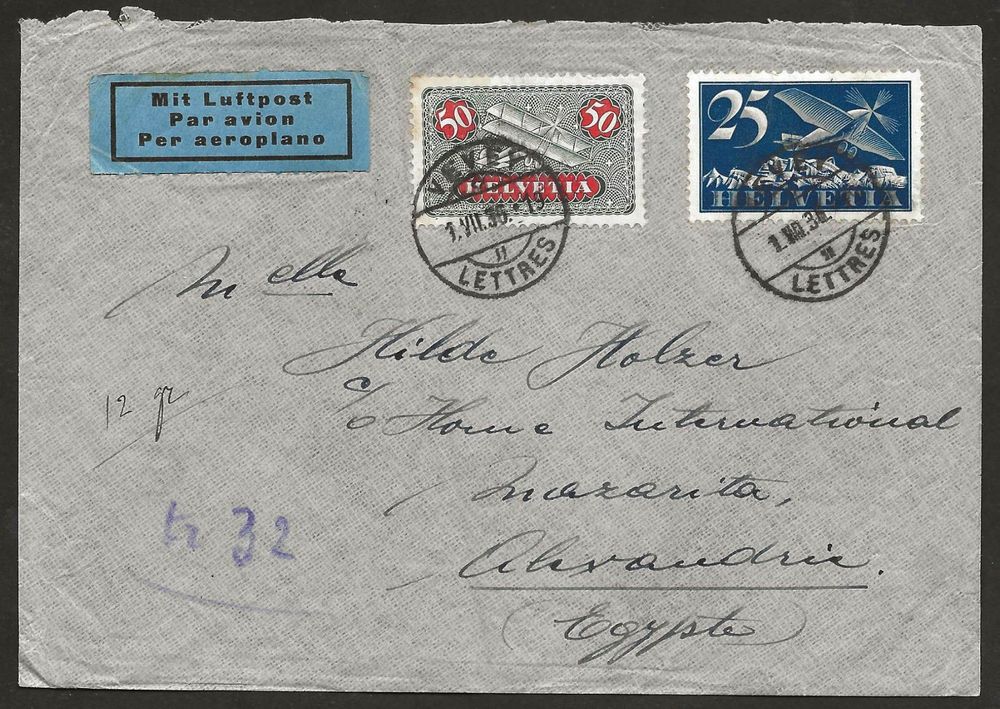 Mit Luftpost
Par avion
Per aeroplano
50 50
HELVETIA
25
HELVETIA
VEVEY
1.VII.36.-19
II
LETTRES
VEVEY
1.VII.36.
II
LETTRES
Melle
Hilde Holzer
c/o Home International
Mazarita,
Alexandrie.
(Egypte)
12 gr
32